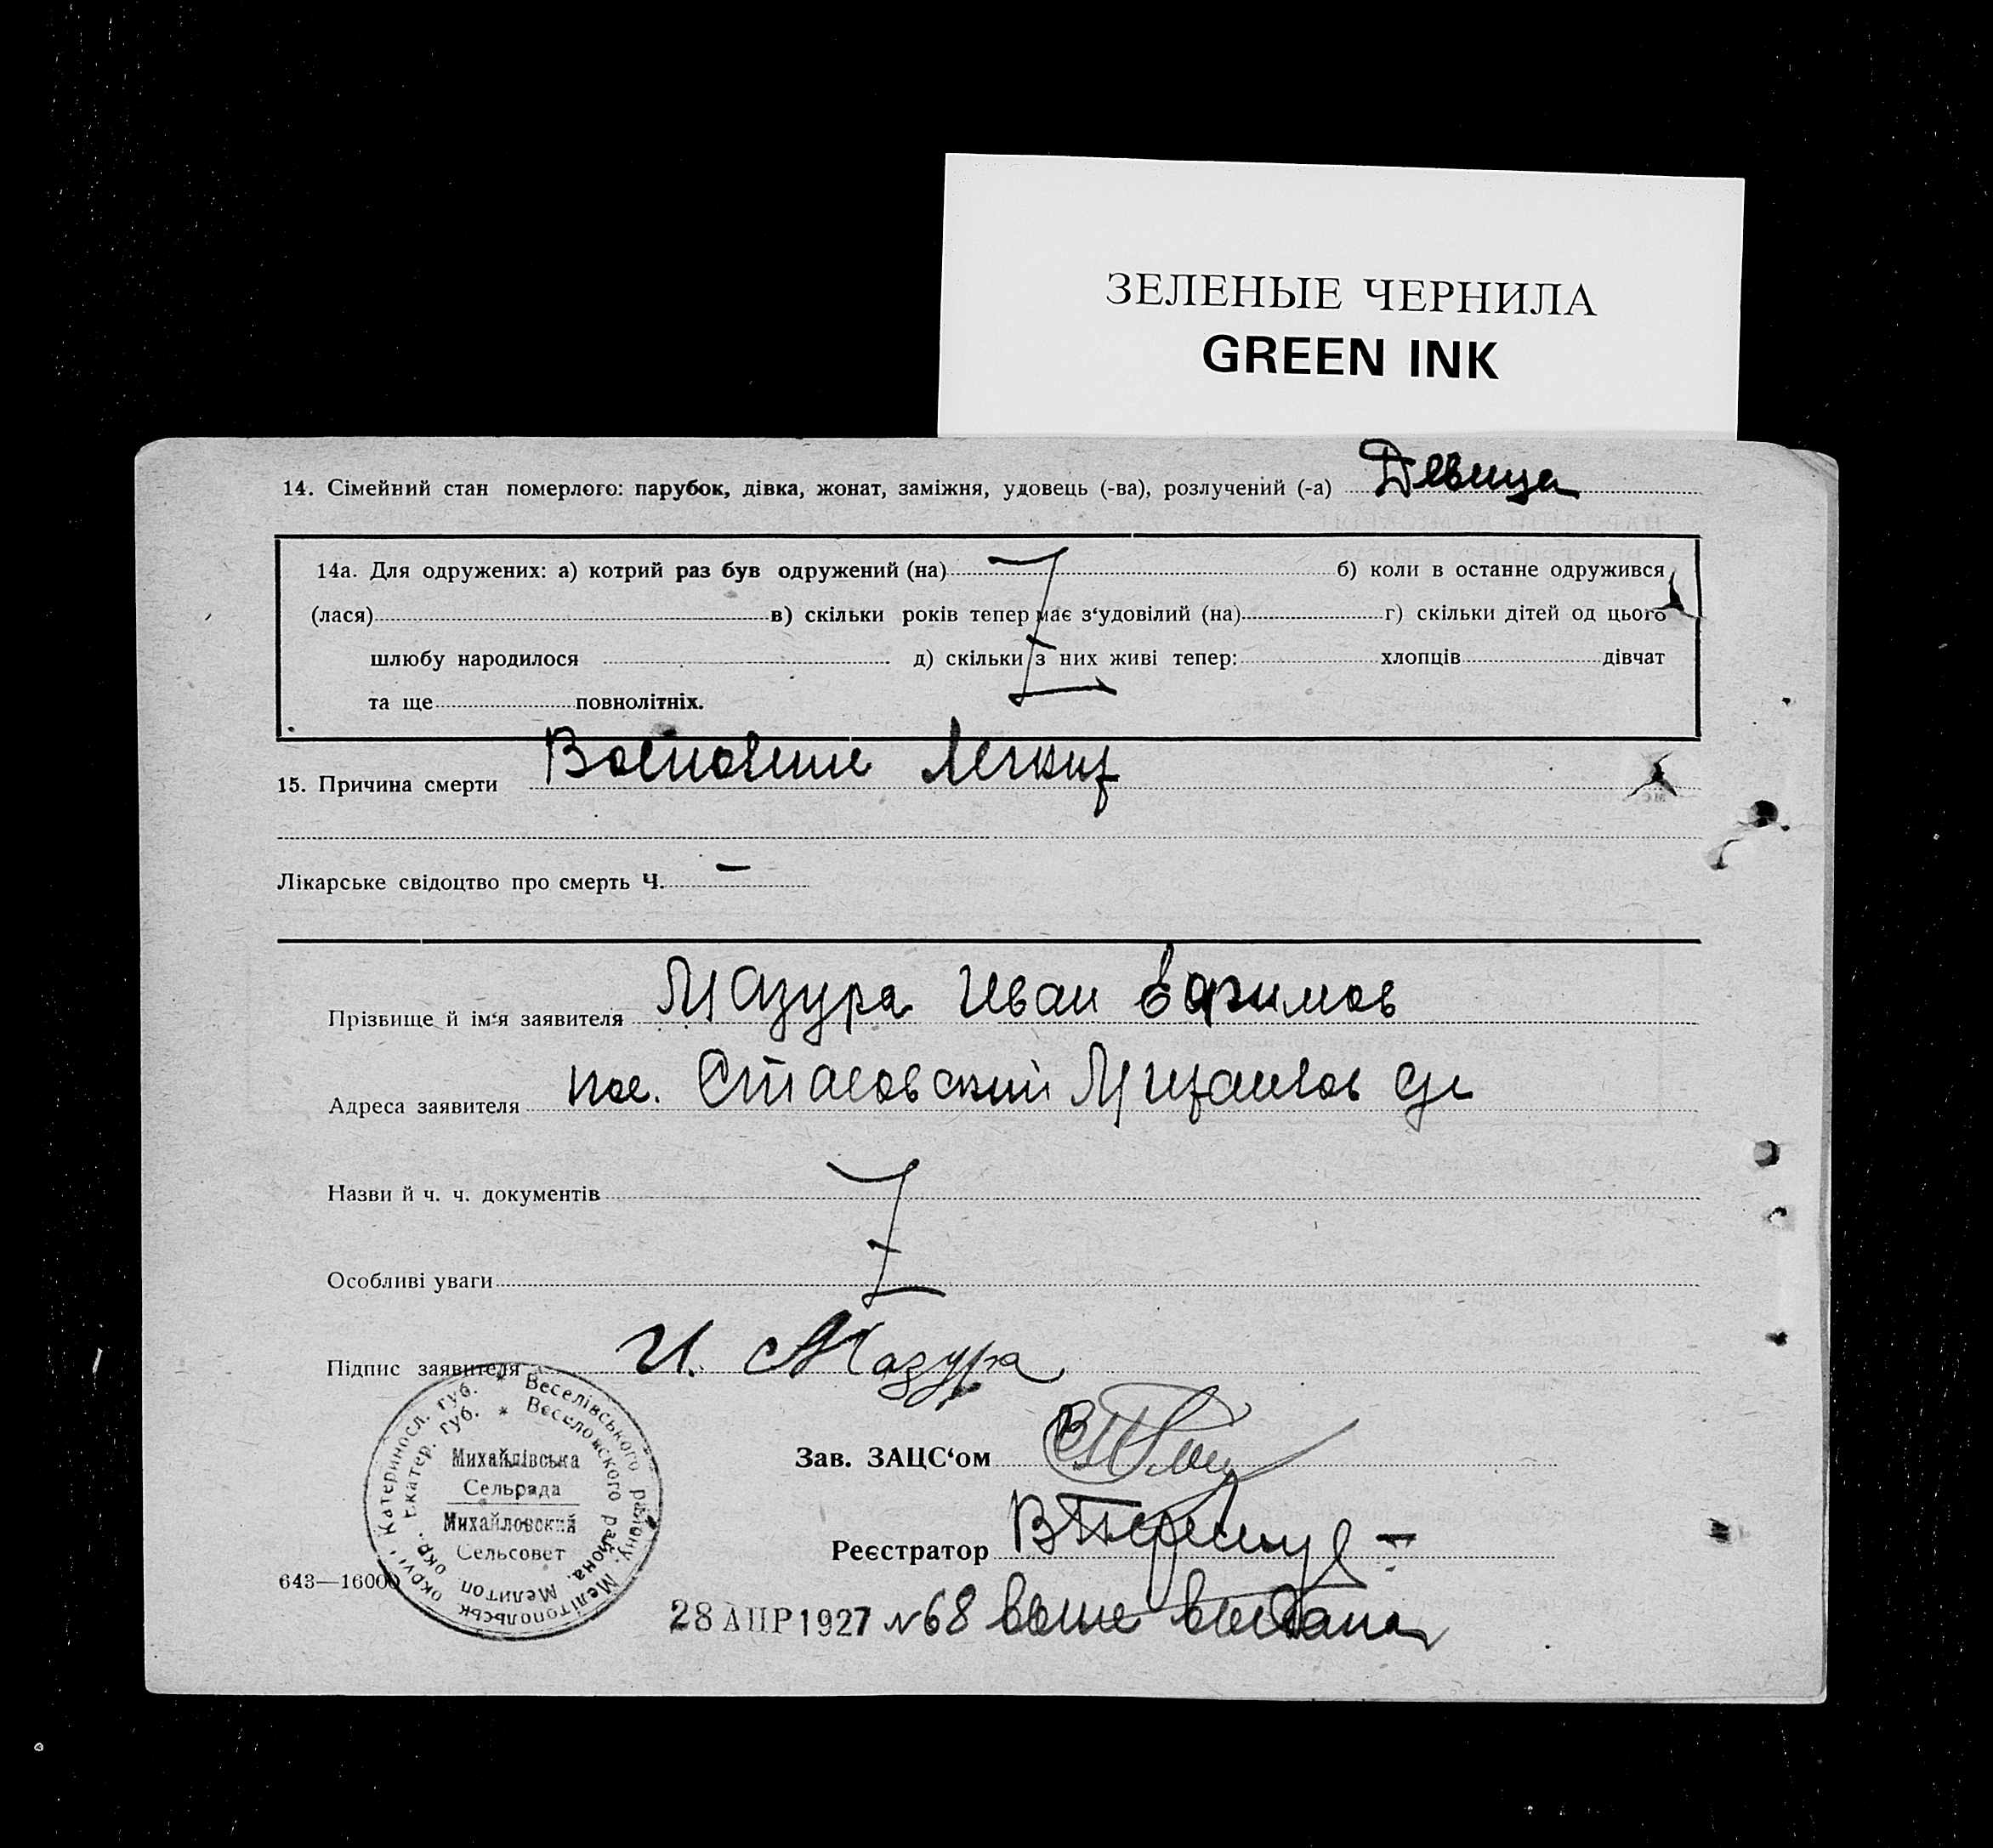 ЗЕЛЕНЫЕ ЧЕРНИЛА
GREEN INK
14. Сімейний стан померлого: парубок, дівка, жонат, заміжня, удовець (-ва), розлучений (-а) Девица
14а. Для одружених: а) котрий раз був одружений (на) б) коли в останне одружився
(лася) в) скільки років тепер має з‘удовілий (на) г) скільки дітей од цього
шлюбу народилося д) скільки з них живі тепер: хлопців дівчат
та ще повнолітніх.
15. Причина смерти Легких
Лікарське свідоцтво про смерть Ч. —
Прізвище й ім‘я заявителя Мазура Иван Ефимов
Адреса заявителя пос.
Назви й ч. ч. документів
Особливі уваги
Підпис заявителя И. Мазура
Катериносл. губ. * Веселівського району, Мелітопольськ. округи
Екатер. губ. * Веселовского района, Мелитоп. окр.
Михайлівська
Сельрада
Михайловский
Сельсовет
Зав. ЗАЦС‘ом
Реєстратор
643—16000
28 АПР 1927 №68